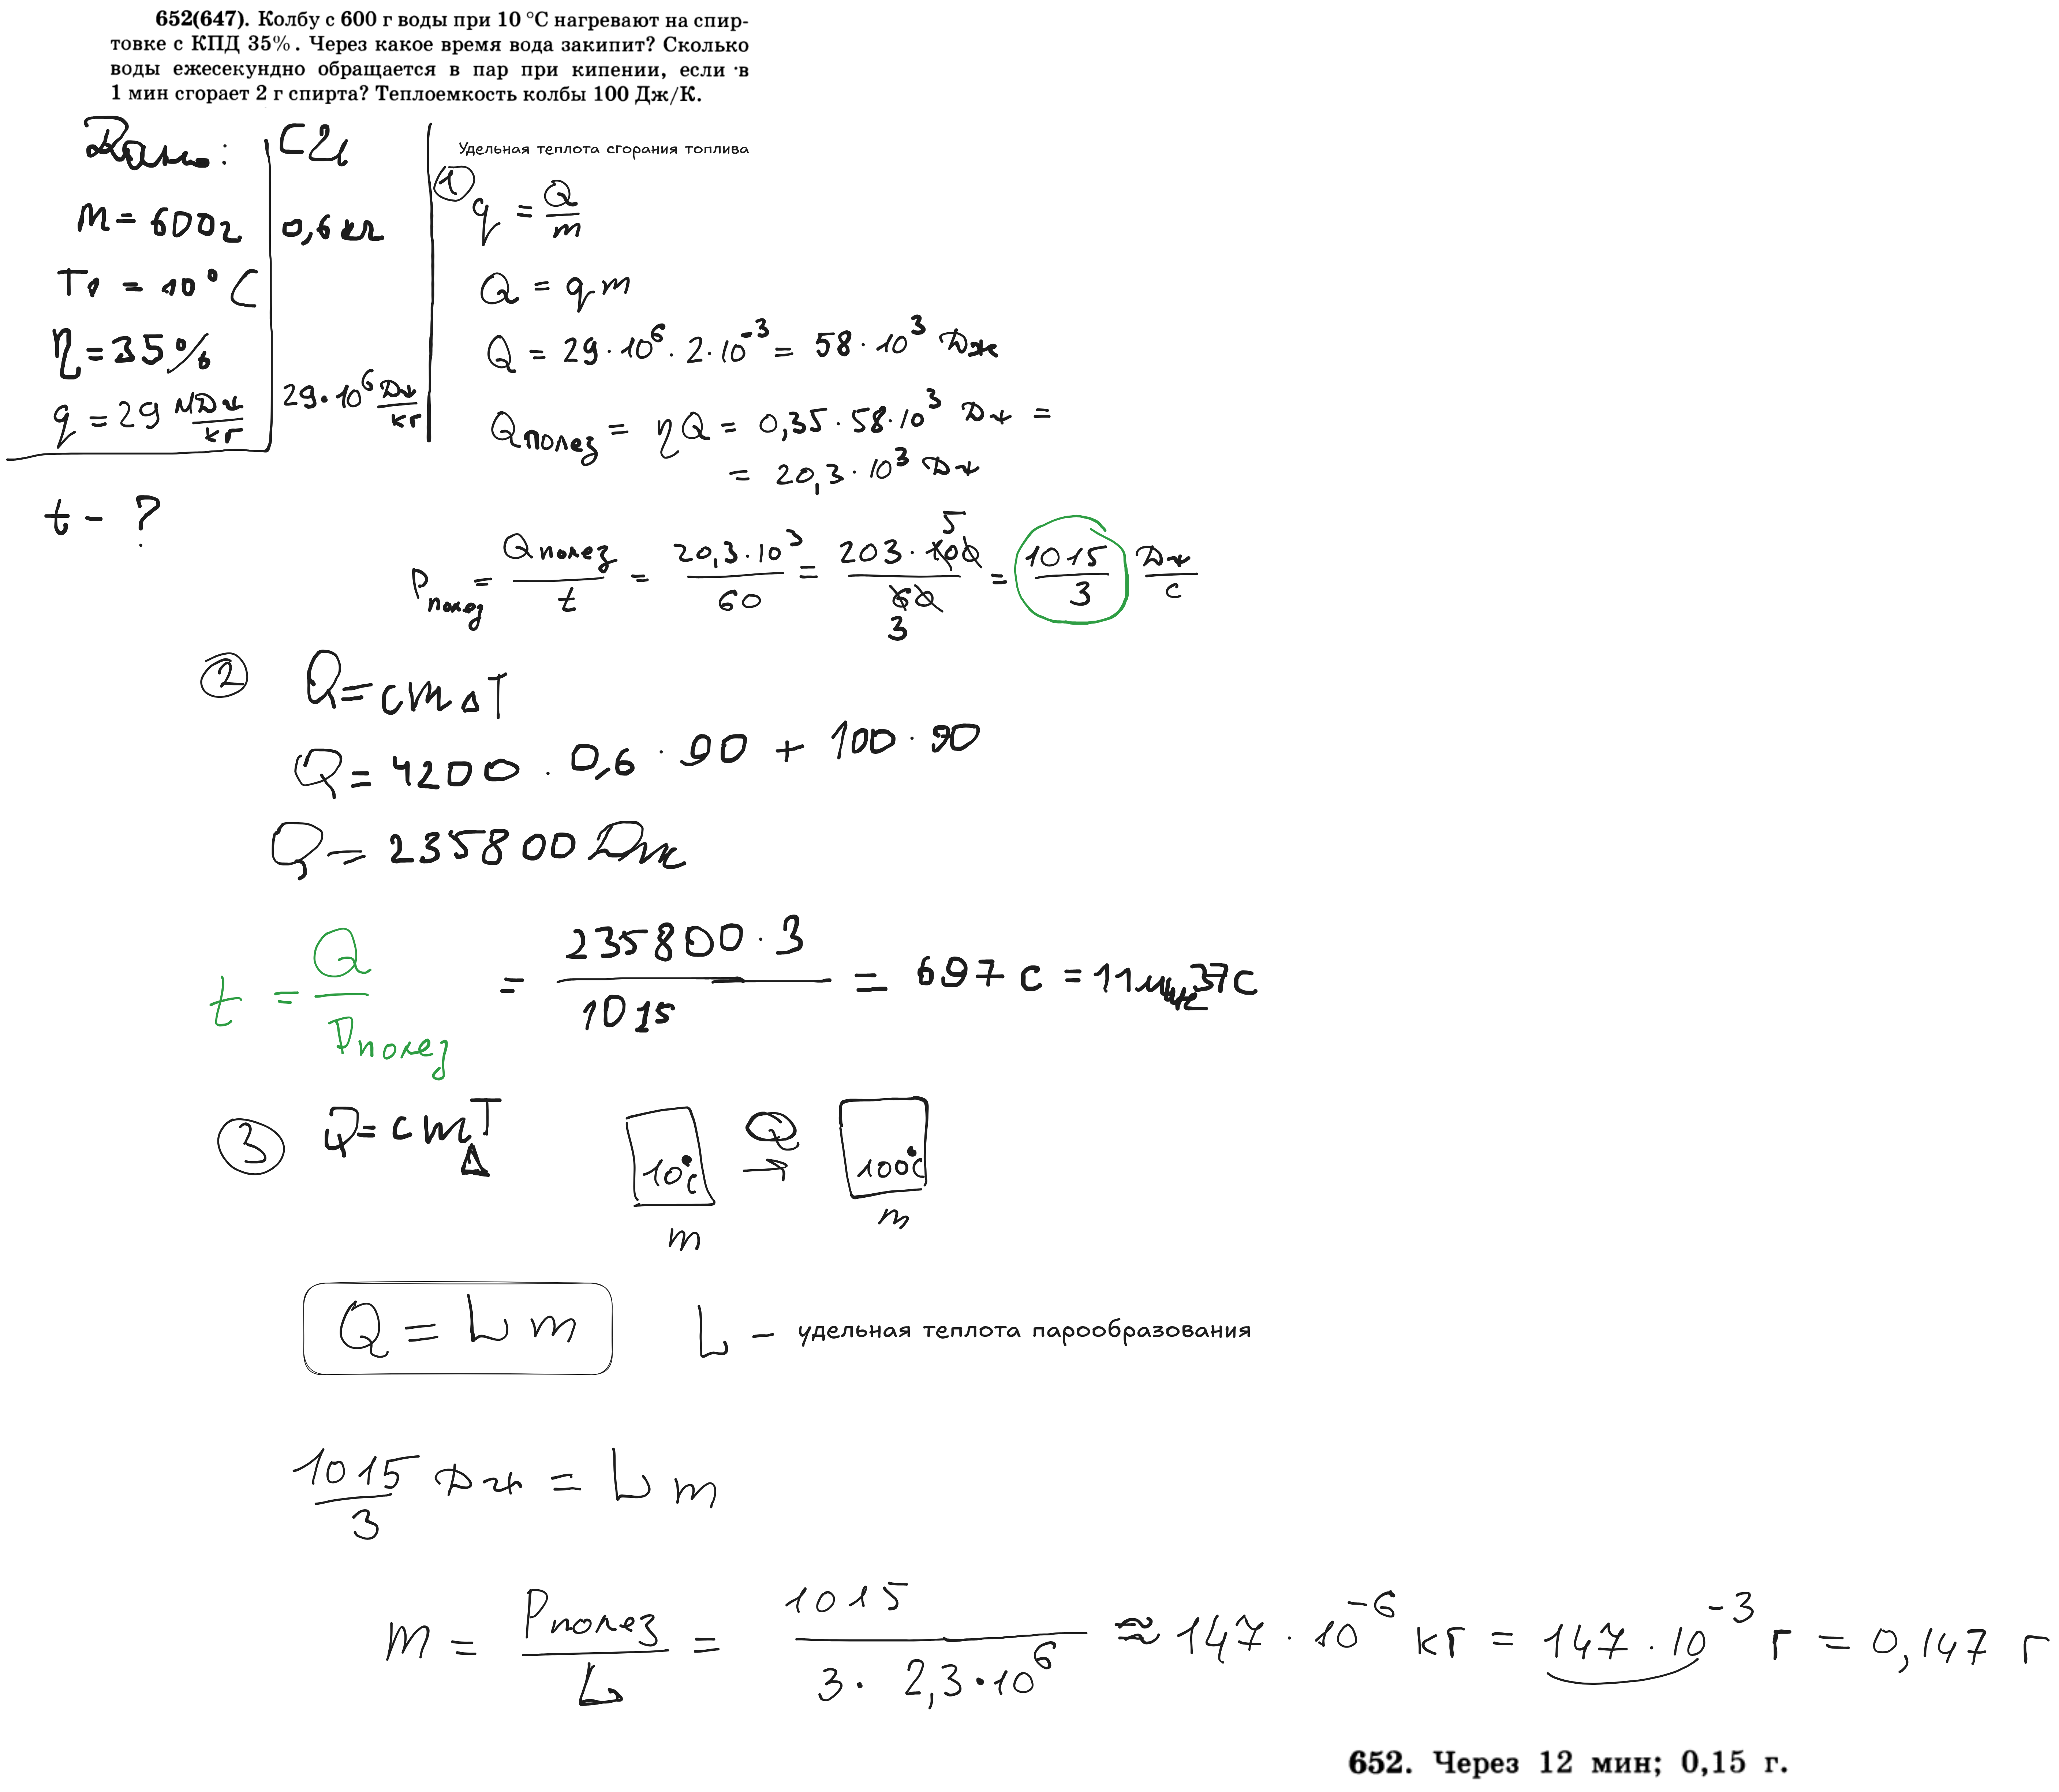 652(647). Колбу с 600 г воды при 10 °С нагревают на спир-
товке с КПД 35%. Через какое время вода закипит? Сколько
воды ежесекундно обращается в пар при кипении, если в
1 мин сгорает 2 г спирта? Теплоемкость колбы 100 Дж/К.
Дано: СИ
m = 600г 0,6 кг
T1 = 10°C
η = 35%
q = 29 МДж/кг 29·10^6 Дж/кг
t - ?
Удельная теплота сгорания топлива
1 q = Q/m
Q = qm
Q = 29·10^6·2·10^-3 = 58·10^3 Дж
Qполез = ηQ = 0,35·58·10^3 Дж =
= 20,3·10^3 Дж
Pполез = Qполез/t = 20,3·10^3/60 = 203·100/60 = 1015/3 Дж/с
5
3
2 Q = cmΔT
Q = 4200·0,6·90 + 100·90
Q = 235800 Дж
t = Q/Pполез = 235800·3/1015 = 697 с = 11мин 37с
3 Q = cmΔT
10°C Q → 100°C
m m
Q = Lm L – удельная теплота парообразования
1015/3 Дж = Lm
m = Pполез/L = 1015/(3·2,3·10^6) ≈ 147·10^-6 кг = 147·10^-3 г = 0,147 г
652. Через 12 мин; 0,15 г.